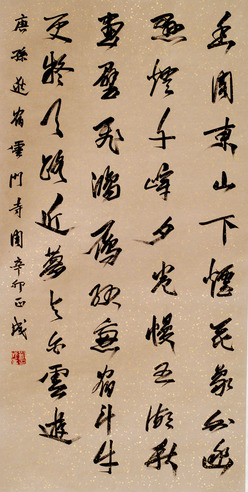 香閣東山下煙花象外幽
懸燈千峰夕卷幔五湖秋
畫壁飛鴻雁紗窗宿斗牛
更疑天路近夢與白雲遊
唐孫逖宿雲門寺閣辛卯正成